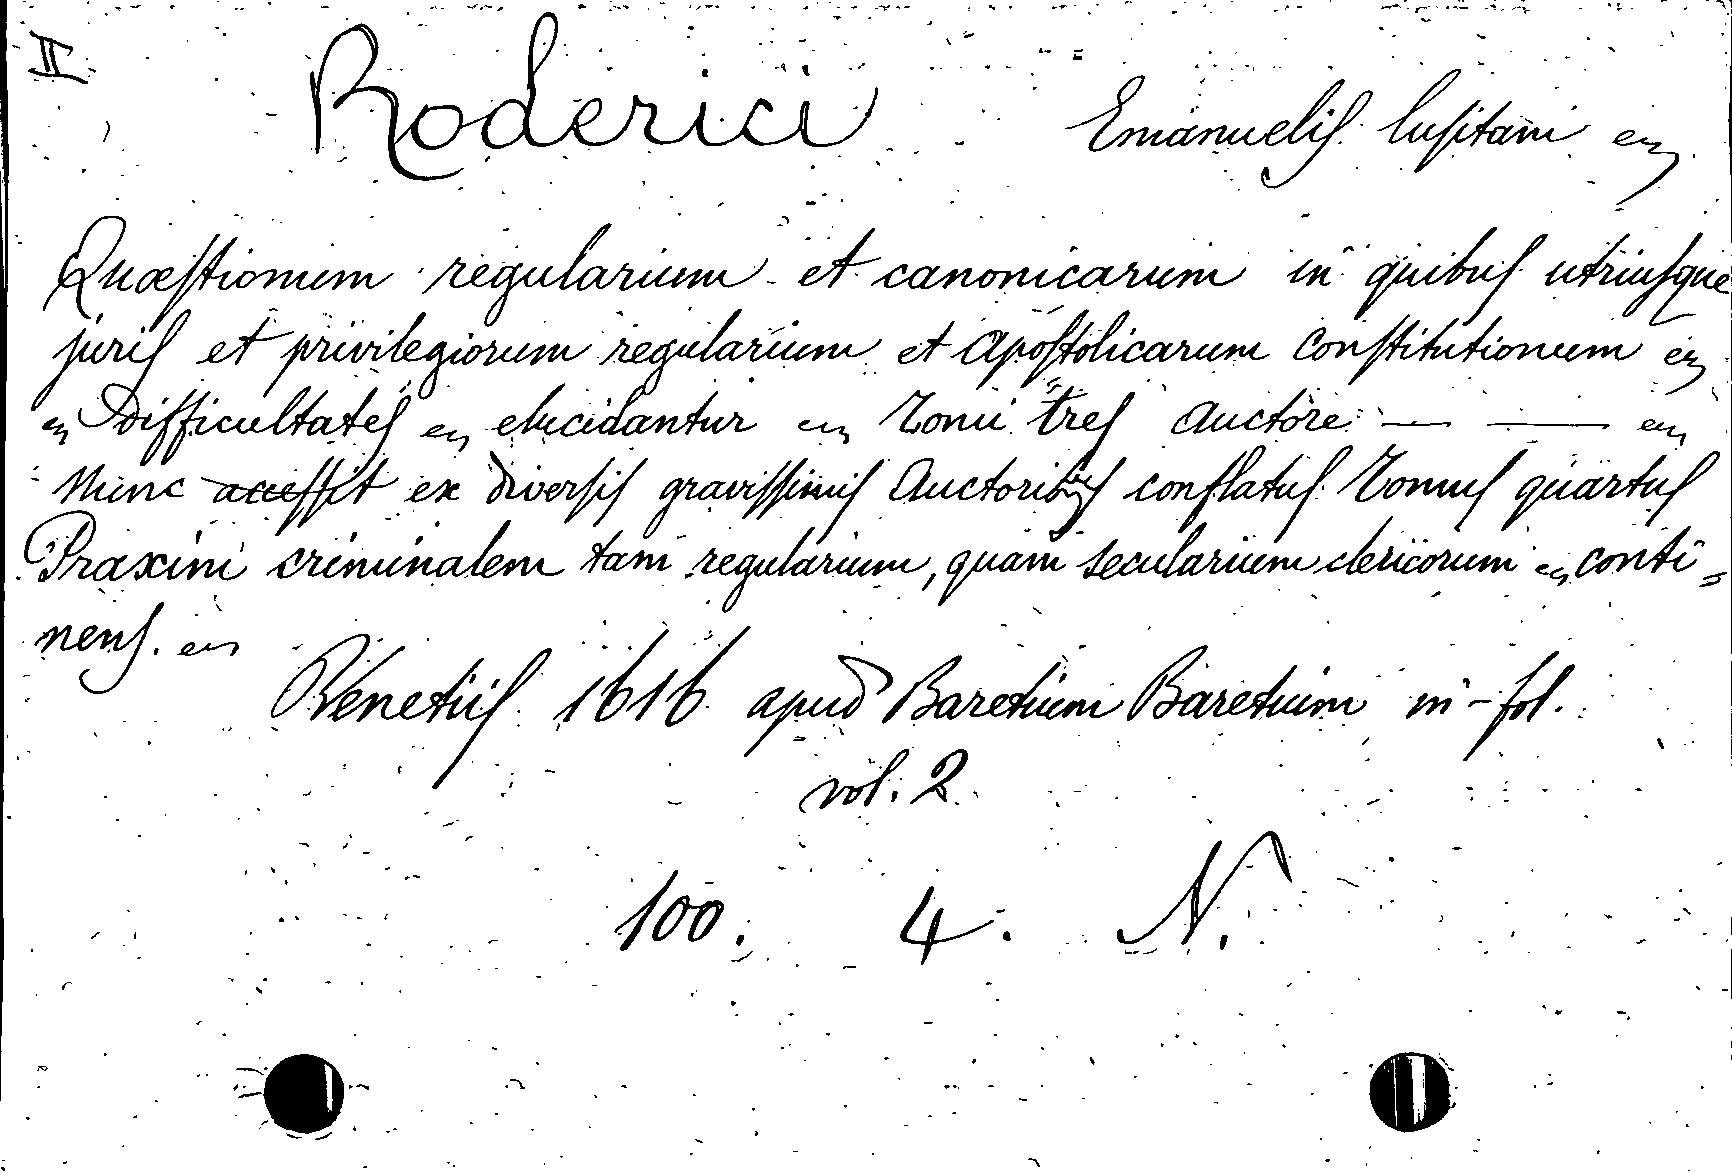 II
Roderici Emanuelis lusitani en
Quæstionum regularium et canonicarum in quibus utriusque
juris et privilegiorum regularium et Apostolicarum Constitutionum en
en Difficultates en elucidantur en Tomi tres Auctore — — en
Nunc accessit ex diversis gravissimis Auctoribus conflatus Tomus quartus
Praxim criminalem tam regularium, quam secularium clericorum en conti=
nens. en
Venetiis 1616 apud Baretium Baretium in-fol.
vol. 2
100. 4. N.